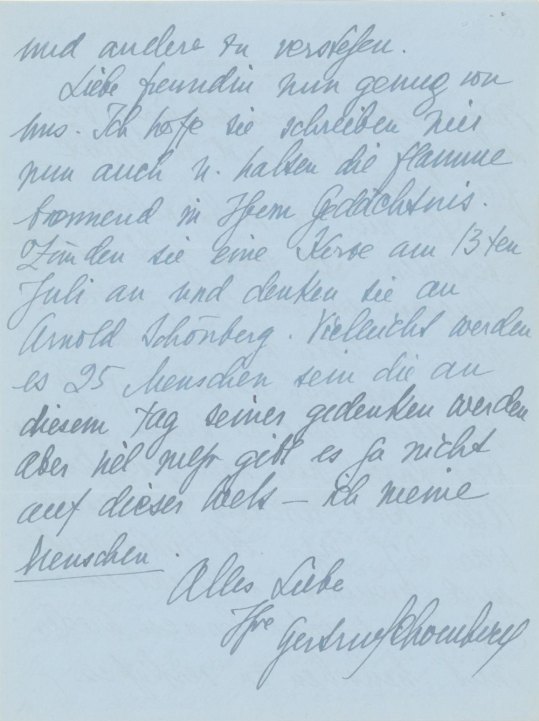 und andere zu verstehen.
Liebe freundin nun genug von
uns. Ich hoffe sie schreiben mir
nun auch u. halten die flamme
brennend in Ihrem Gedächtnis.
Zünden sie eine Kerze am 13ten
Juli an und denken sie an
Arnold Schönberg. Vielleicht werden
es 25 Menschen sein die an
diesem Tag seiner gedenken werden
aber viel mehr gibt es ja nicht
auf dieser Welt — ich meine
Menschen.
Alles Liebe
Ihre
Gertrud Schoenberg